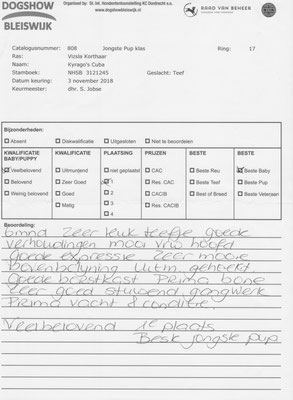 DOGSHOW BLEISWIJK
Organised by: St. Int. Hondententoonstelling KC Dordrecht e.o.
www.dogshowbleiswijk.nl
RAAD VAN BEHEER
Catalogusnummer: 808 Jongste Pup klas Ring: 17
Ras: Vizsla Korthaar
Naam: Kyrago's Cuba
Stamboek: NHSB 3121245 Geslacht: Teef
Datum keuring: 3 november 2018
Keurmeester: dhr. S. Jobse
Bijzonderheden:
Absent Diskwalificatie Uitgesloten Niet te beoordelen
KWALIFICATIE BABY/PUPPY KWALIFICATIE PLAATSING PRIJZEN BESTE BESTE
Veelbelovend Uitmuntend Niet geplaatst CAC Beste Reu Beste Baby
Belovend Zeer Goed 1 Res. CAC Beste Teef Beste Pup
Weinig Belovend Goed 2 CACIB Best of Breed Beste Veteraan
Matig 3 Res. CACIB
4
Beoordeling:
6mnd zeer leuk teefje goede
verhoudingen mooi vrw hoofd
goede expressie zeer mooie
bovenbelijning uitm. gehoekt
goede borstkast prima bone
zeer goed stuwend gangwerk
prima vacht & conditie
Veelbelovend 1e plaats
Beste jongste pup